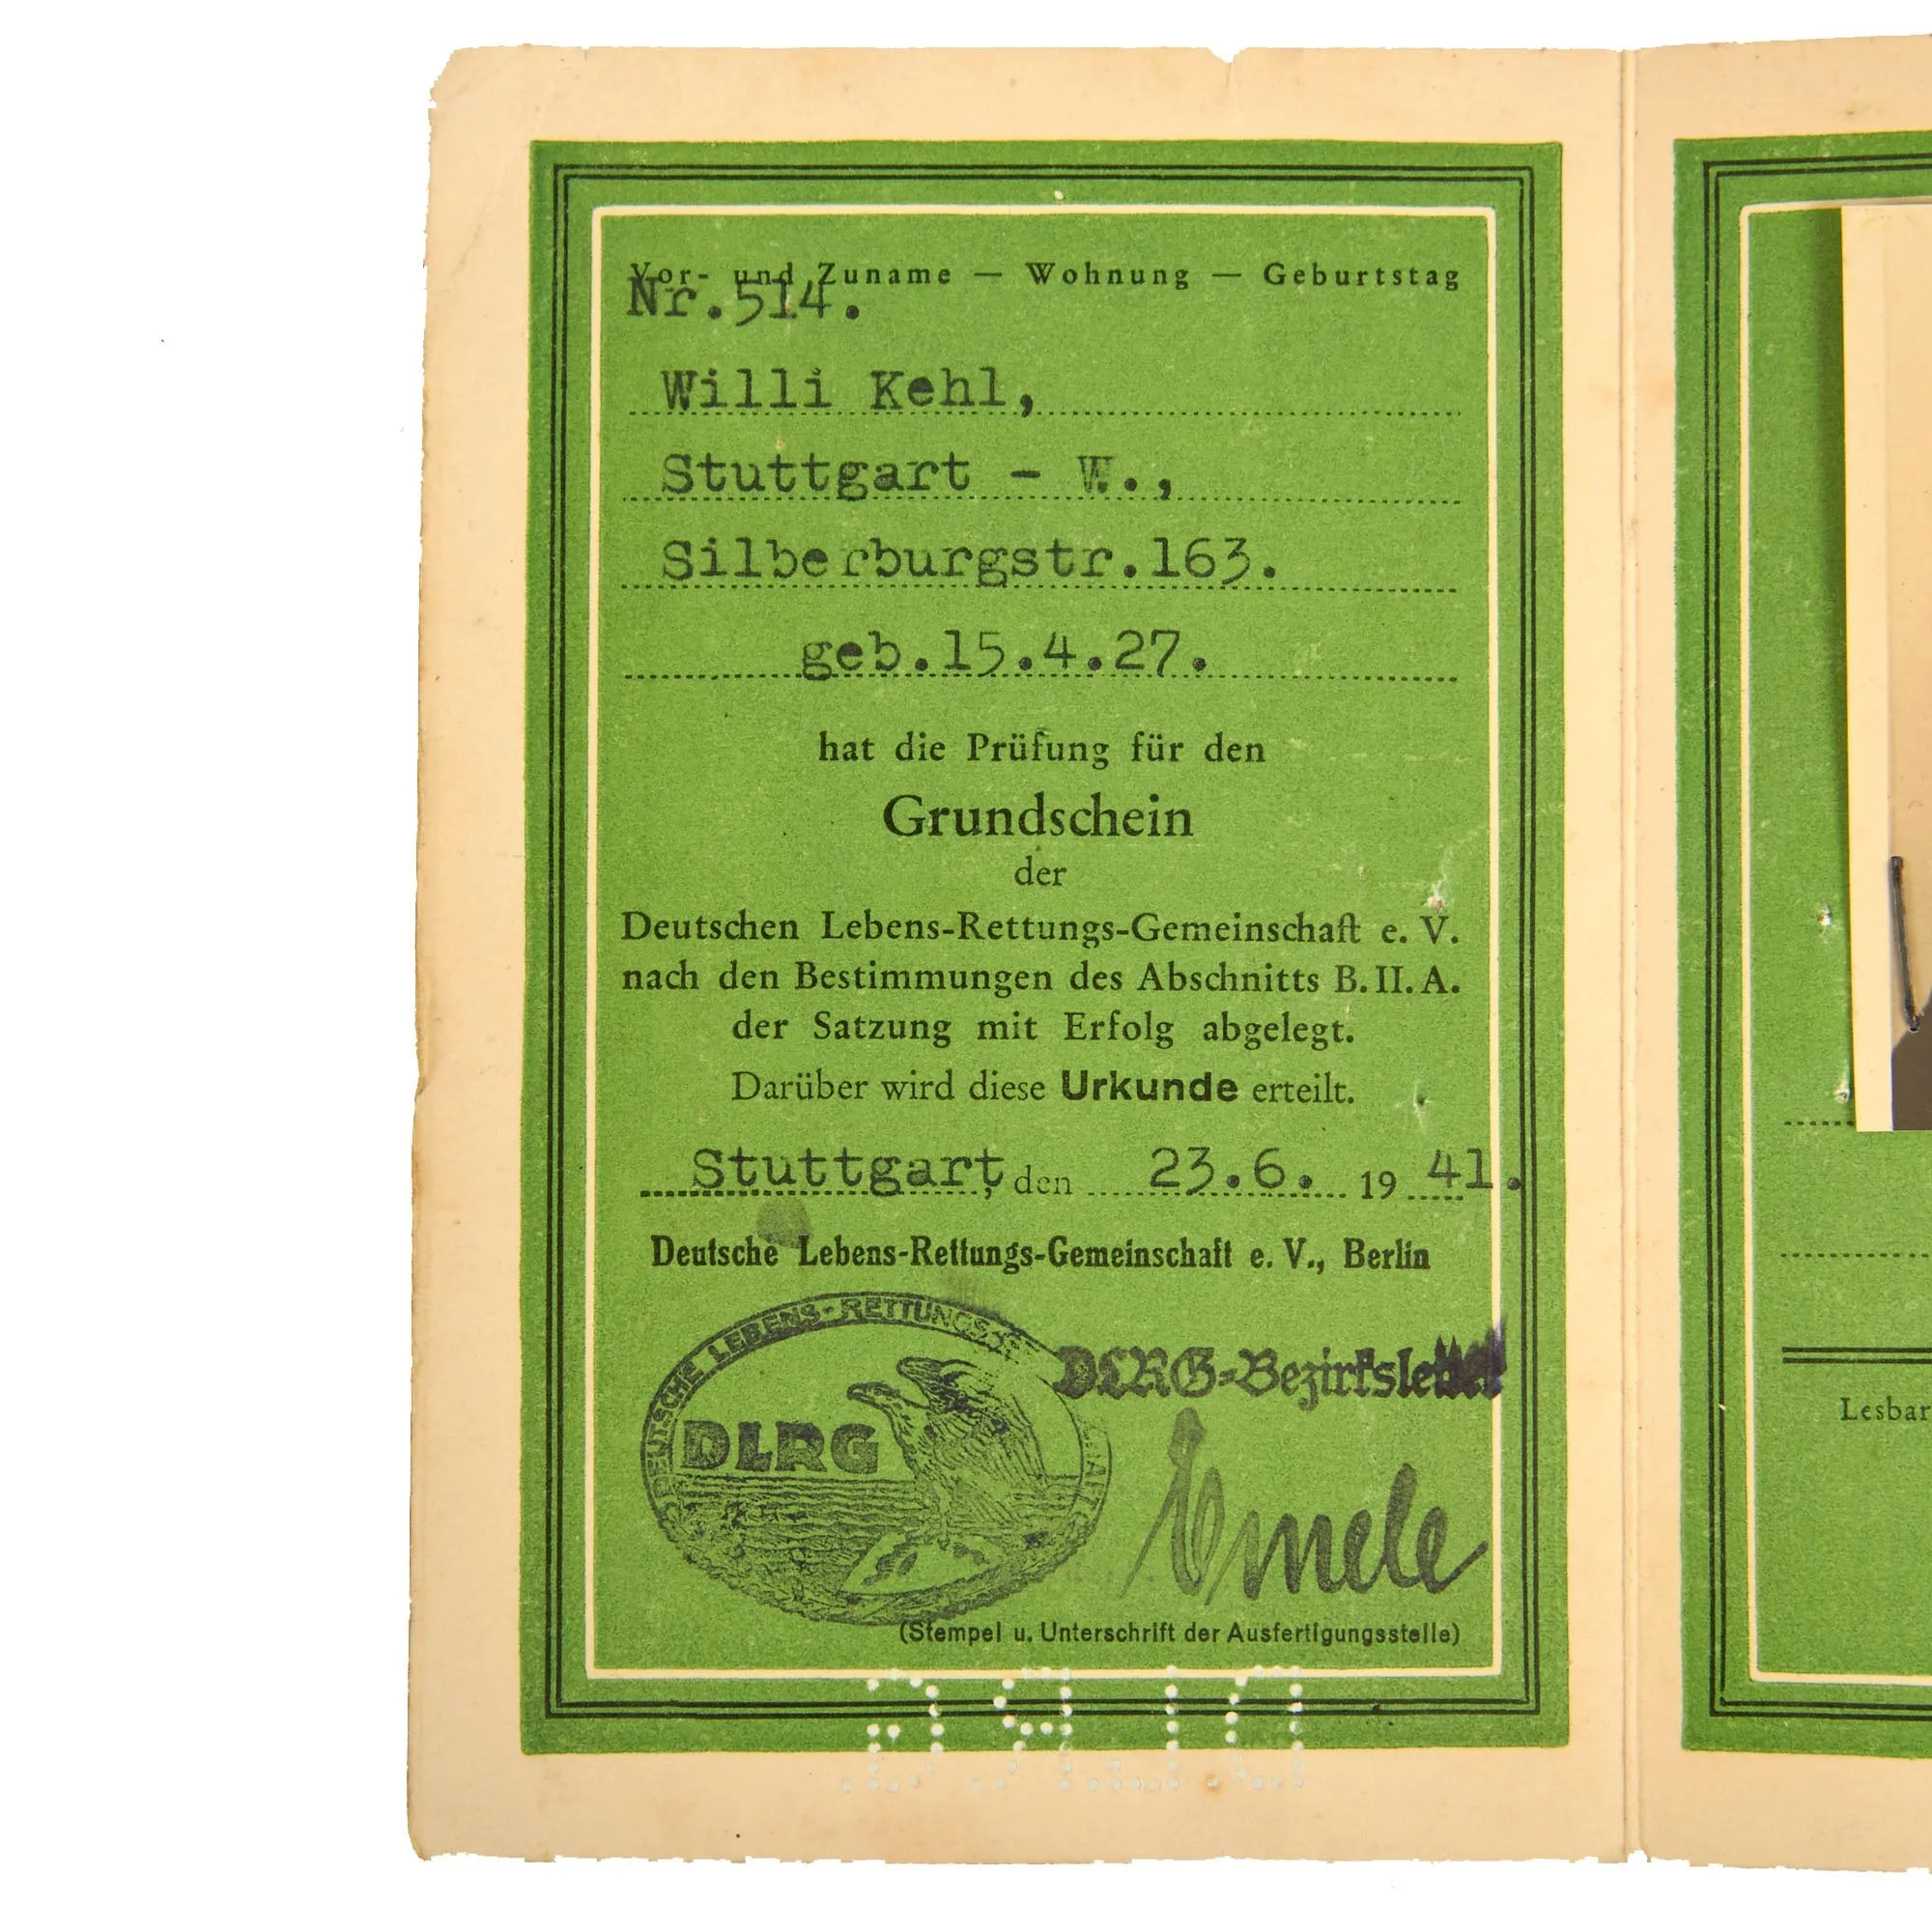 Vor- und Zuname — Wohnung — Geburtstag
Nr.514.
Willi Kehl,
Stuttgart - W.,
Silberburgstr.163.
geb.15.4.27.
hat die Prüfung für den
Grundschein
der
Deutschen Lebens-Rettungs-Gemeinschaft e. V.
nach den Bestimmungen des Abschnitts B. II. A.
der Satzung mit Erfolg abgelegt.
Darüber wird diese Urkunde erteilt.
Stuttgart, den 23.6. 19 41.
Deutsche Lebens-Rettungs-Gemeinschaft e. V., Berlin
DEUTSCHE LEBENS-RETTUNGS-
DLRG
DLRG-Bezirksleiter
Emele
(Stempel u. Unterschrift der Ausfertigungsstelle)
DLRG
Lesbar